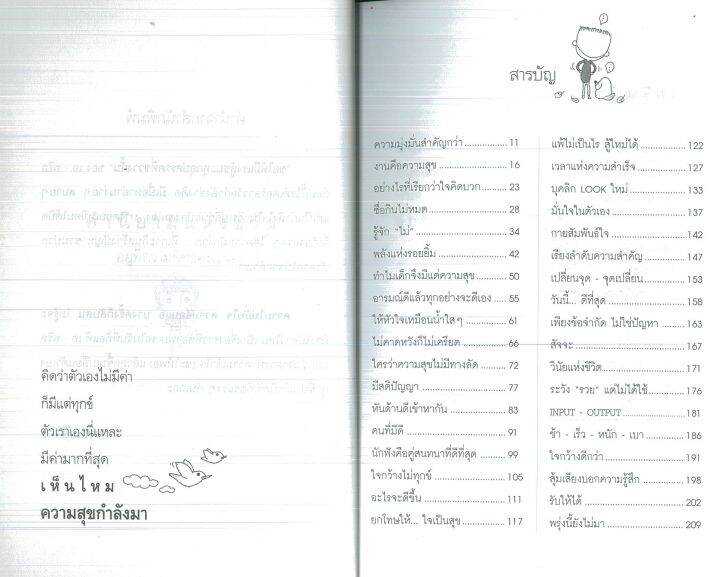 คิดว่าตัวเองไม่มีค่า
ก็มีแต่ทุกข์
ตัวเราเองนี่แหละ
มีค่ามากที่สุด
เห็นไหม
ความสุขกำลังมา
สารบัญ
ความมุ่งมั่นสำคัญกว่า 11
งานคือความสุข 16
อย่างไรที่เรียกว่าใจคิดบวก 23
ซื่อกินไม่หมด 28
รู้จัก "ไม่" 34
พลังแห่งรอยยิ้ม 42
ทำไมเด็กจึงมีแต่ความสุข 50
อารมณ์ดีแล้วทุกอย่างจะดีเอง 55
ให้หัวใจเหมือนน้ำใสๆ 61
ไม่คาดหวังก็ไม่เครียด 66
ใครว่าความสุขไม่มีทางลัด 72
มีสติปัญญา 77
หันด้านดีเข้าหากัน 83
คนที่มีดี 91
นักฟังคือคู่สนทนาที่ดีที่สุด 99
ใจกว้างไม่ทุกข์ 105
อะไรจะดีขึ้น 111
ยกโทษให้... ใจเป็นสุข 117
แพ้ไม่เป็นไร สู้ใหม่ได้ 122
เวลาแห่งความสำเร็จ 127
บุคลิก LOOK ใหม่ 133
มั่นใจในตัวเอง 137
กายสัมพันธ์ใจ 142
เรียงลำดับความสำคัญ 147
เปลี่ยนจุด - จุดเปลี่ยน 153
วันนี้... ดีที่สุด 158
เพียงข้อจำกัด ไม่ใช่ปัญหา 163
สัจจะ 167
วินัยแห่งชีวิต 171
ระวัง "รวย" แต่ไม่ได้ใช้ 176
INPUT - OUTPUT 181
ช้า - เร็ว - หนัก - เบา 186
ใจกว้างดีกว่า 191
สุ้มเสียงบอกความรู้สึก 198
รับให้ได้ 202
พรุ่งนี้ยังไม่มา 209